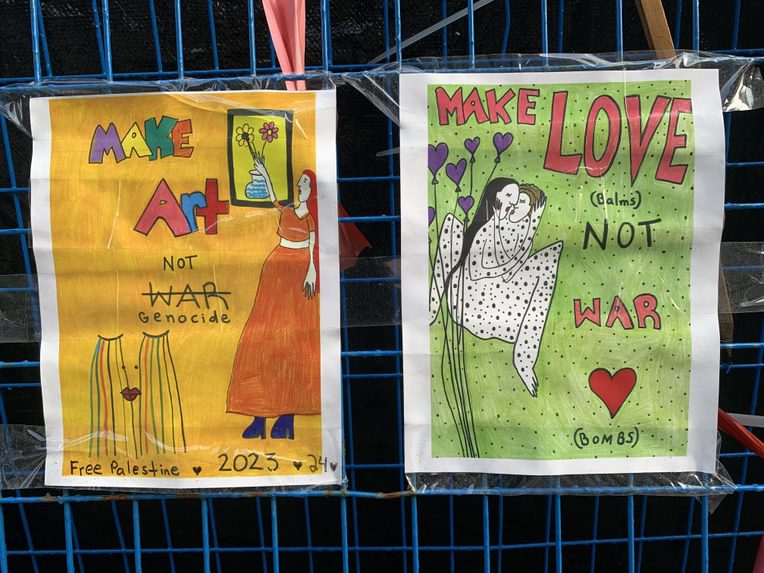 MAKE
Art
NOT
WAR
Genocide
Free Palestine ♥ 2023 ♥ 24 ♥
MAKE LOVE
(Balms)
NOT
WAR
(BOMBS)